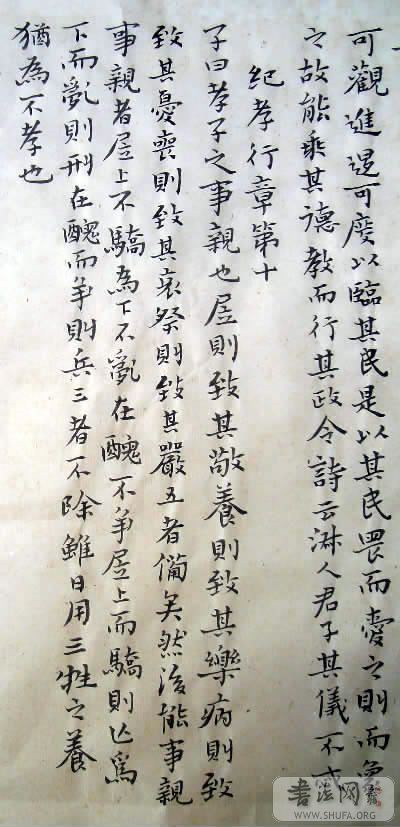 可觀進退可度以臨其民是以其民畏而愛之則而象
之故能乘其德教而行其政令詩云淋人君子其儀不忒
紀孝行章第十
子曰孝子之事親也居則致其敬養則致其樂病則致
致其憂喪則致其哀祭則致其嚴五者備矣然後能事親
事親者居上不驕為下不亂在醜不爭居上而驕則亡為
下而亂則刑在醜而爭則兵三者不除雖日用三牲之養
猶為不孝也
書法网
WWW.SHUFA.ORG